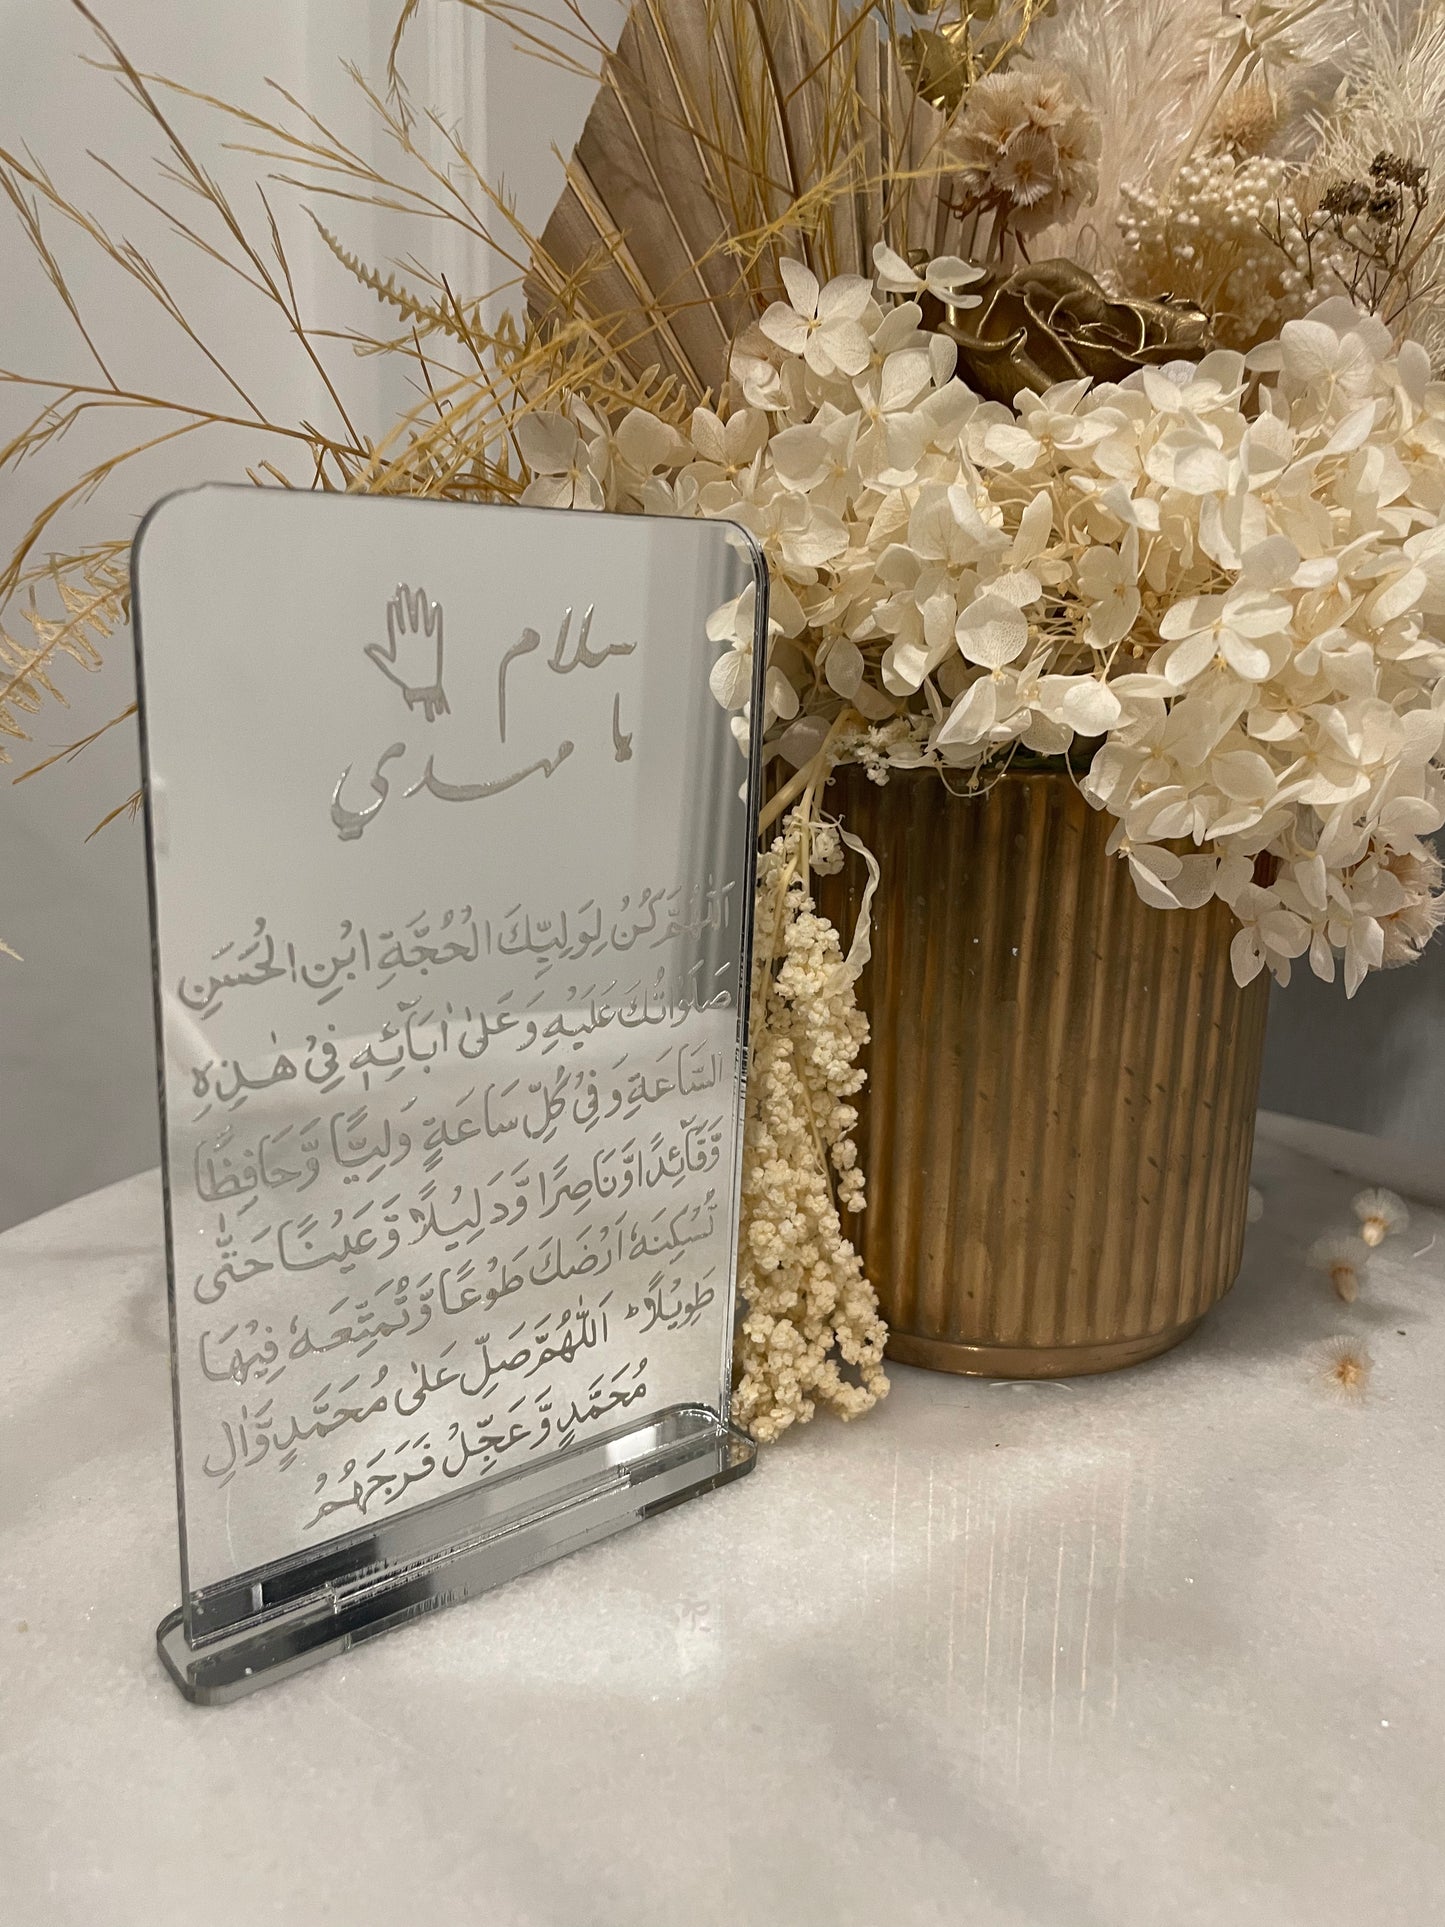 سلام
يا مهدي
اَللّٰهُمَّ كُنْ لِوَلِيِّكَ الْحُجَّةِ ابْنِ الْحُسَنِ
صَلَوَاتُكَ عَلَيْهِ وَ عَلىٰ اٰبَآئِهٖ فِيْ هٰذِهِ
السَّاعَةِ وَ فِيْ كُلِّ سَاعَةٍ وَلِيًّا وَّحَافِظًا
وَّقَآئِدًا وَّنَاصِرًا وَّدَلِيْلًا وَّعَيْنًا حَتّٰى
تُسْكِنَهٗ اَرْضَكَ طَوْعًا وَّتُمَتِّعَهٗ فِيْهَا
طَوِيْلًا ؕ اَللّٰهُمَّ صَلِّ عَلىٰ مُحَمَّدٍ وَّاٰلِ
مُحَمَّدٍ وَّعَجِّلْ فَرَجَهُمْ